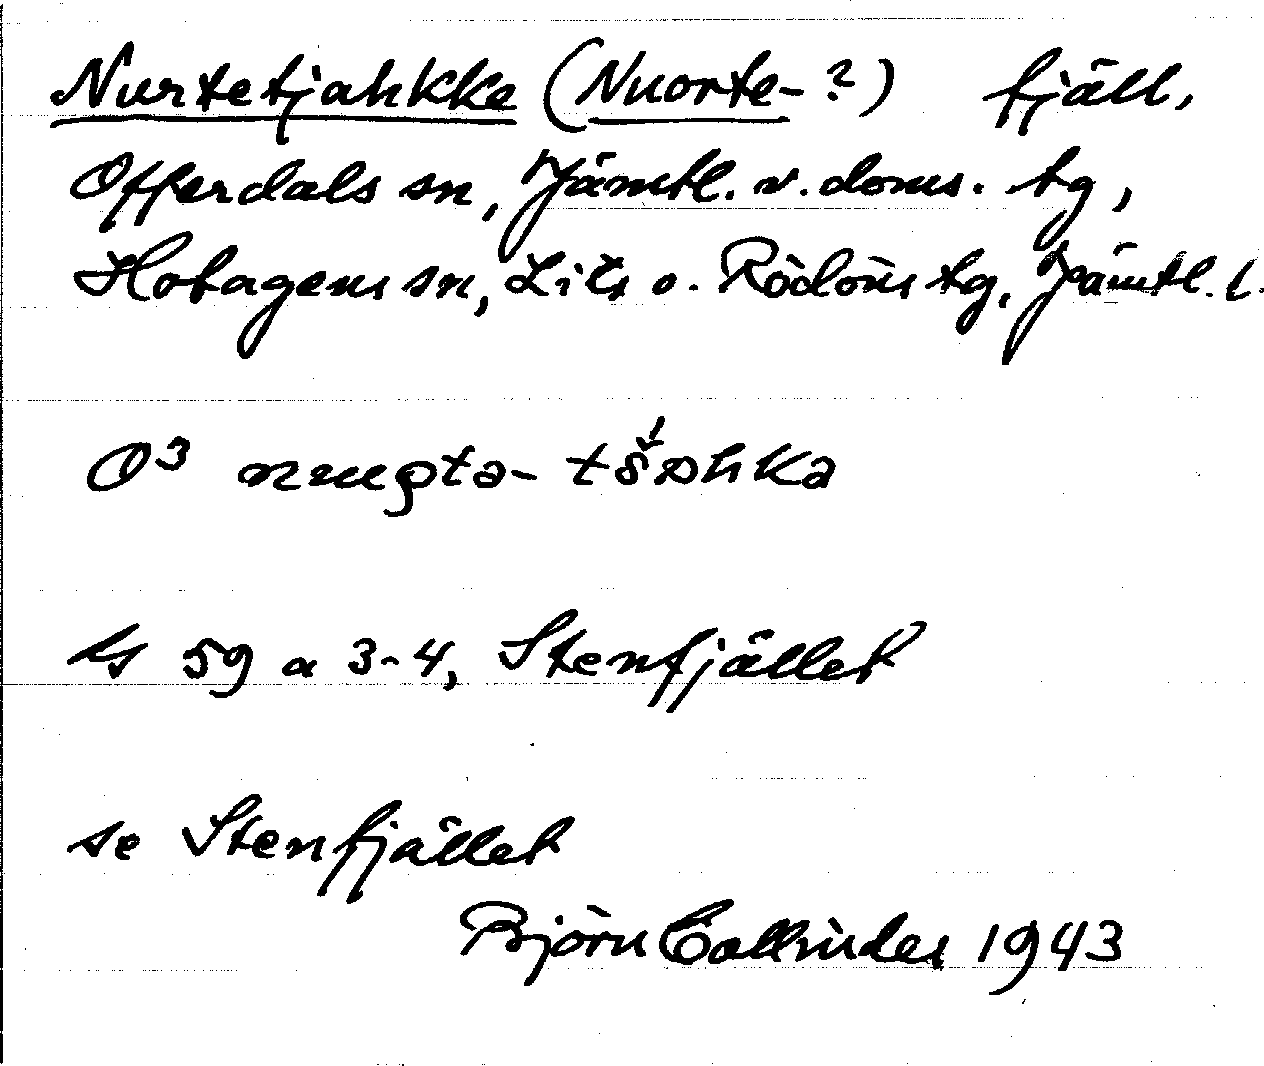 Nurtetjahkke (Nuorte-?) fjäll,
Offerdals sn, Jämtl. v. doms. tg,
Hotagens sn, Lits o. Rödöns tg, Jämtl. l.
O³
ls 59 a 3-4, Stenfjället
se Stenfjället
Björn Collinder 1943